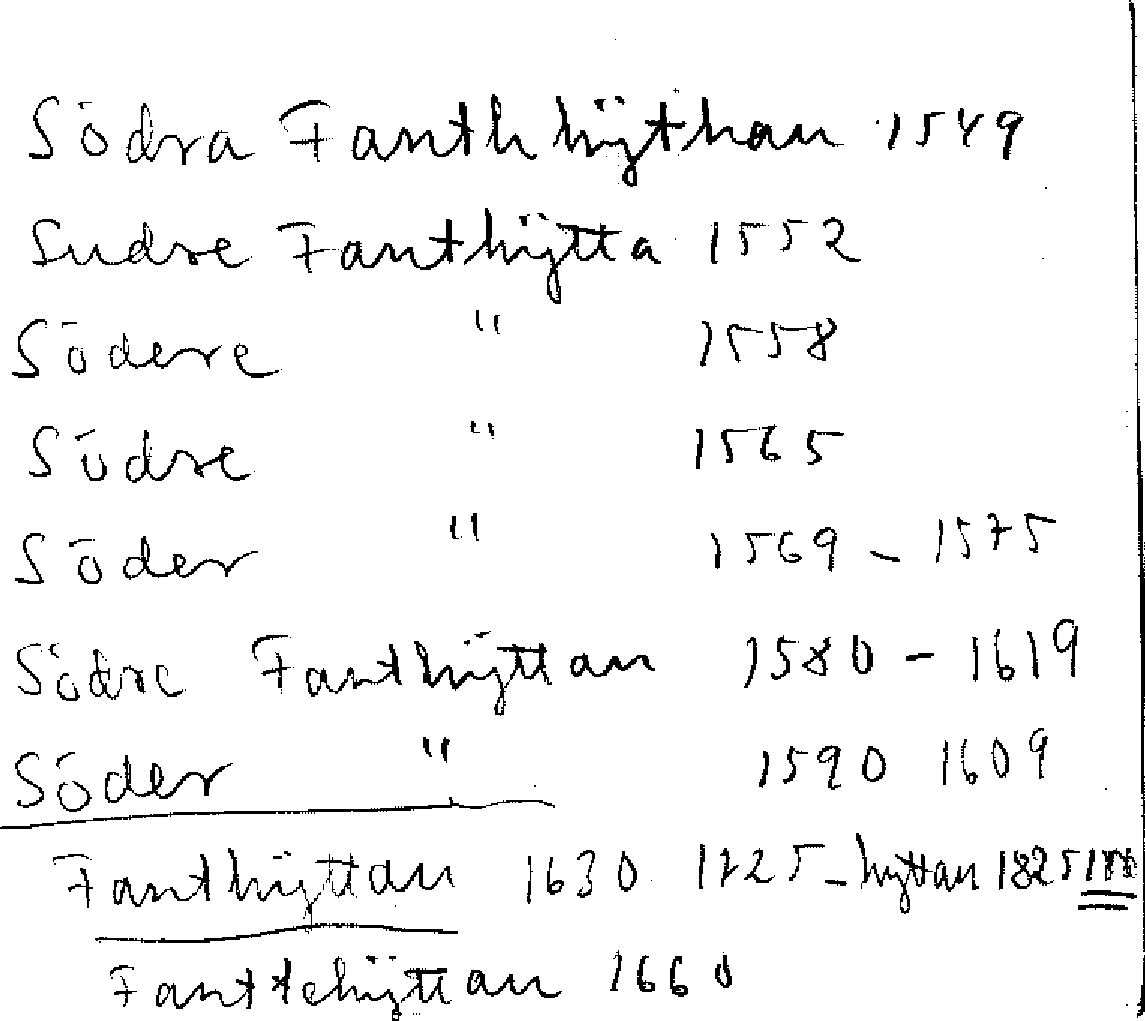 Södra Fanthhÿthan 1549
Sudre Fanthÿtta 1552
Södere " 1558
Södre " 1565
Söder " 1569 - 1575
Södre Fanthÿttan 1580 - 1619
Söder " 1590 1609
Fanthÿttan 1630 1725 - hyttan 1825
Fanttehÿttan 1660